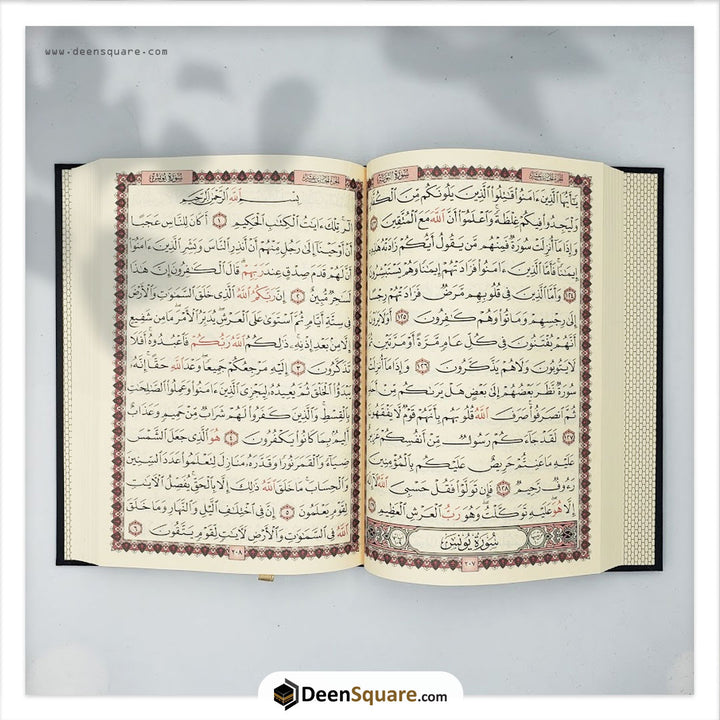 www.deensquare.com
سُورَةُ التَّوْبَةِ
يَٰٓأَيُّهَا الَّذِينَ ءَامَنُوا قَٰتِلُوا الَّذِينَ يَلُونَكُم مِّنَ
وَلْيَجِدُوا فِيكُمْ غِلْظَةً وَاعْلَمُوا أَنَّ اللَّهَ مَعَ الْمُتَّقِينَ
وَإِذَا مَا أُنزِلَتْ سُورَةٌ فَمِنْهُم مَّن يَقُولُ أَيُّكُمْ زَادَتْهُ
إِيمَٰنًا فَأَمَّا الَّذِينَ ءَامَنُوا فَزَادَتْهُمْ إِيمَٰنًا وَهُمْ يَسْتَبْشِرُونَ
١٢٤ وَأَمَّا الَّذِينَ فِي قُلُوبِهِم مَّرَضٌ فَزَادَتْهُمْ رِجْسًا
إِلَىٰ رِجْسِهِمْ وَمَاتُوا وَهُمْ كَٰفِرُونَ ١٢٥ أَوَلَا يَرَوْنَ
أَنَّهُمْ يُفْتَنُونَ فِي كُلِّ عَامٍ مَّرَّةً أَوْ مَرَّتَيْنِ
لَا يَتُوبُونَ وَلَا هُمْ يَذَّكَّرُونَ ١٢٦ وَإِذَا مَا أُنزِلَتْ
سُورَةٌ نَّظَرَ بَعْضُهُمْ إِلَىٰ بَعْضٍ هَلْ يَرَىٰكُم مِّنْ
ثُمَّ انصَرَفُوا صَرَفَ اللَّهُ قُلُوبَهُم بِأَنَّهُمْ قَوْمٌ لَّا يَفْقَهُونَ
١٢٧ لَقَدْ جَاءَكُمْ رَسُولٌ مِّنْ أَنفُسِكُمْ عَزِيزٌ
عَلَيْهِ مَا عَنِتُّمْ حَرِيصٌ عَلَيْكُم بِالْمُؤْمِنِينَ
رَءُوفٌ رَّحِيمٌ ١٢٨ فَإِن تَوَلَّوْا فَقُلْ حَسْبِيَ اللَّهُ لَا
إِلَّا هُوَ عَلَيْهِ تَوَكَّلْتُ وَهُوَ رَبُّ الْعَرْشِ الْعَظِيمِ
سُورَةُ يُونُسَ
٢٠٧
سُورَةُ يُونُسَ
بِسْمِ اللَّهِ الرَّحْمَٰنِ الرَّحِيمِ
الٓر تِلْكَ ءَايَٰتُ الْكِتَٰبِ الْحَكِيمِ ١ أَكَانَ لِلنَّاسِ عَجَبًا
أَنْ أَوْحَيْنَا إِلَىٰ رَجُلٍ مِّنْهُمْ أَنْ أَنذِرِ النَّاسَ وَبَشِّرِ الَّذِينَ ءَامَنُوا
أَنَّ لَهُمْ قَدَمَ صِدْقٍ عِندَ رَبِّهِمْ قَالَ الْكَٰفِرُونَ إِنَّ هَٰذَا
لَسَٰحِرٌ مُّبِينٌ ٢ إِنَّ رَبَّكُمُ اللَّهُ الَّذِي خَلَقَ السَّمَٰوَٰتِ وَالْأَرْضَ
فِي سِتَّةِ أَيَّامٍ ثُمَّ اسْتَوَىٰ عَلَى الْعَرْشِ يُدَبِّرُ الْأَمْرَ مَا مِن شَفِيعٍ
إِلَّا مِن بَعْدِ إِذْنِهِ ذَٰلِكُمُ اللَّهُ رَبُّكُمْ فَاعْبُدُوهُ أَفَلَا
تَذَكَّرُونَ ٣ إِلَيْهِ مَرْجِعُكُمْ جَمِيعًا وَعْدَ اللَّهِ حَقًّا إِنَّهُ
يَبْدَؤُا الْخَلْقَ ثُمَّ يُعِيدُهُ لِيَجْزِيَ الَّذِينَ ءَامَنُوا وَعَمِلُوا الصَّٰلِحَٰتِ
بِالْقِسْطِ وَالَّذِينَ كَفَرُوا لَهُمْ شَرَابٌ مِّنْ حَمِيمٍ وَعَذَابٌ
أَلِيمٌ بِمَا كَانُوا يَكْفُرُونَ ٤ هُوَ الَّذِي جَعَلَ الشَّمْسَ
ضِيَاءً وَالْقَمَرَ نُورًا وَقَدَّرَهُ مَنَازِلَ لِتَعْلَمُوا عَدَدَ السِّنِينَ
وَالْحِسَابَ مَا خَلَقَ اللَّهُ ذَٰلِكَ إِلَّا بِالْحَقِّ يُفَصِّلُ الْآيَٰتِ
لِقَوْمٍ يَعْلَمُونَ ٥ إِنَّ فِي اخْتِلَٰفِ الَّيْلِ وَالنَّهَارِ وَمَا خَلَقَ
اللَّهُ فِي السَّمَٰوَٰتِ وَالْأَرْضِ لَآيَٰتٍ لِّقَوْمٍ يَتَّقُونَ ٦
٢٠٨
DeenSquare.com